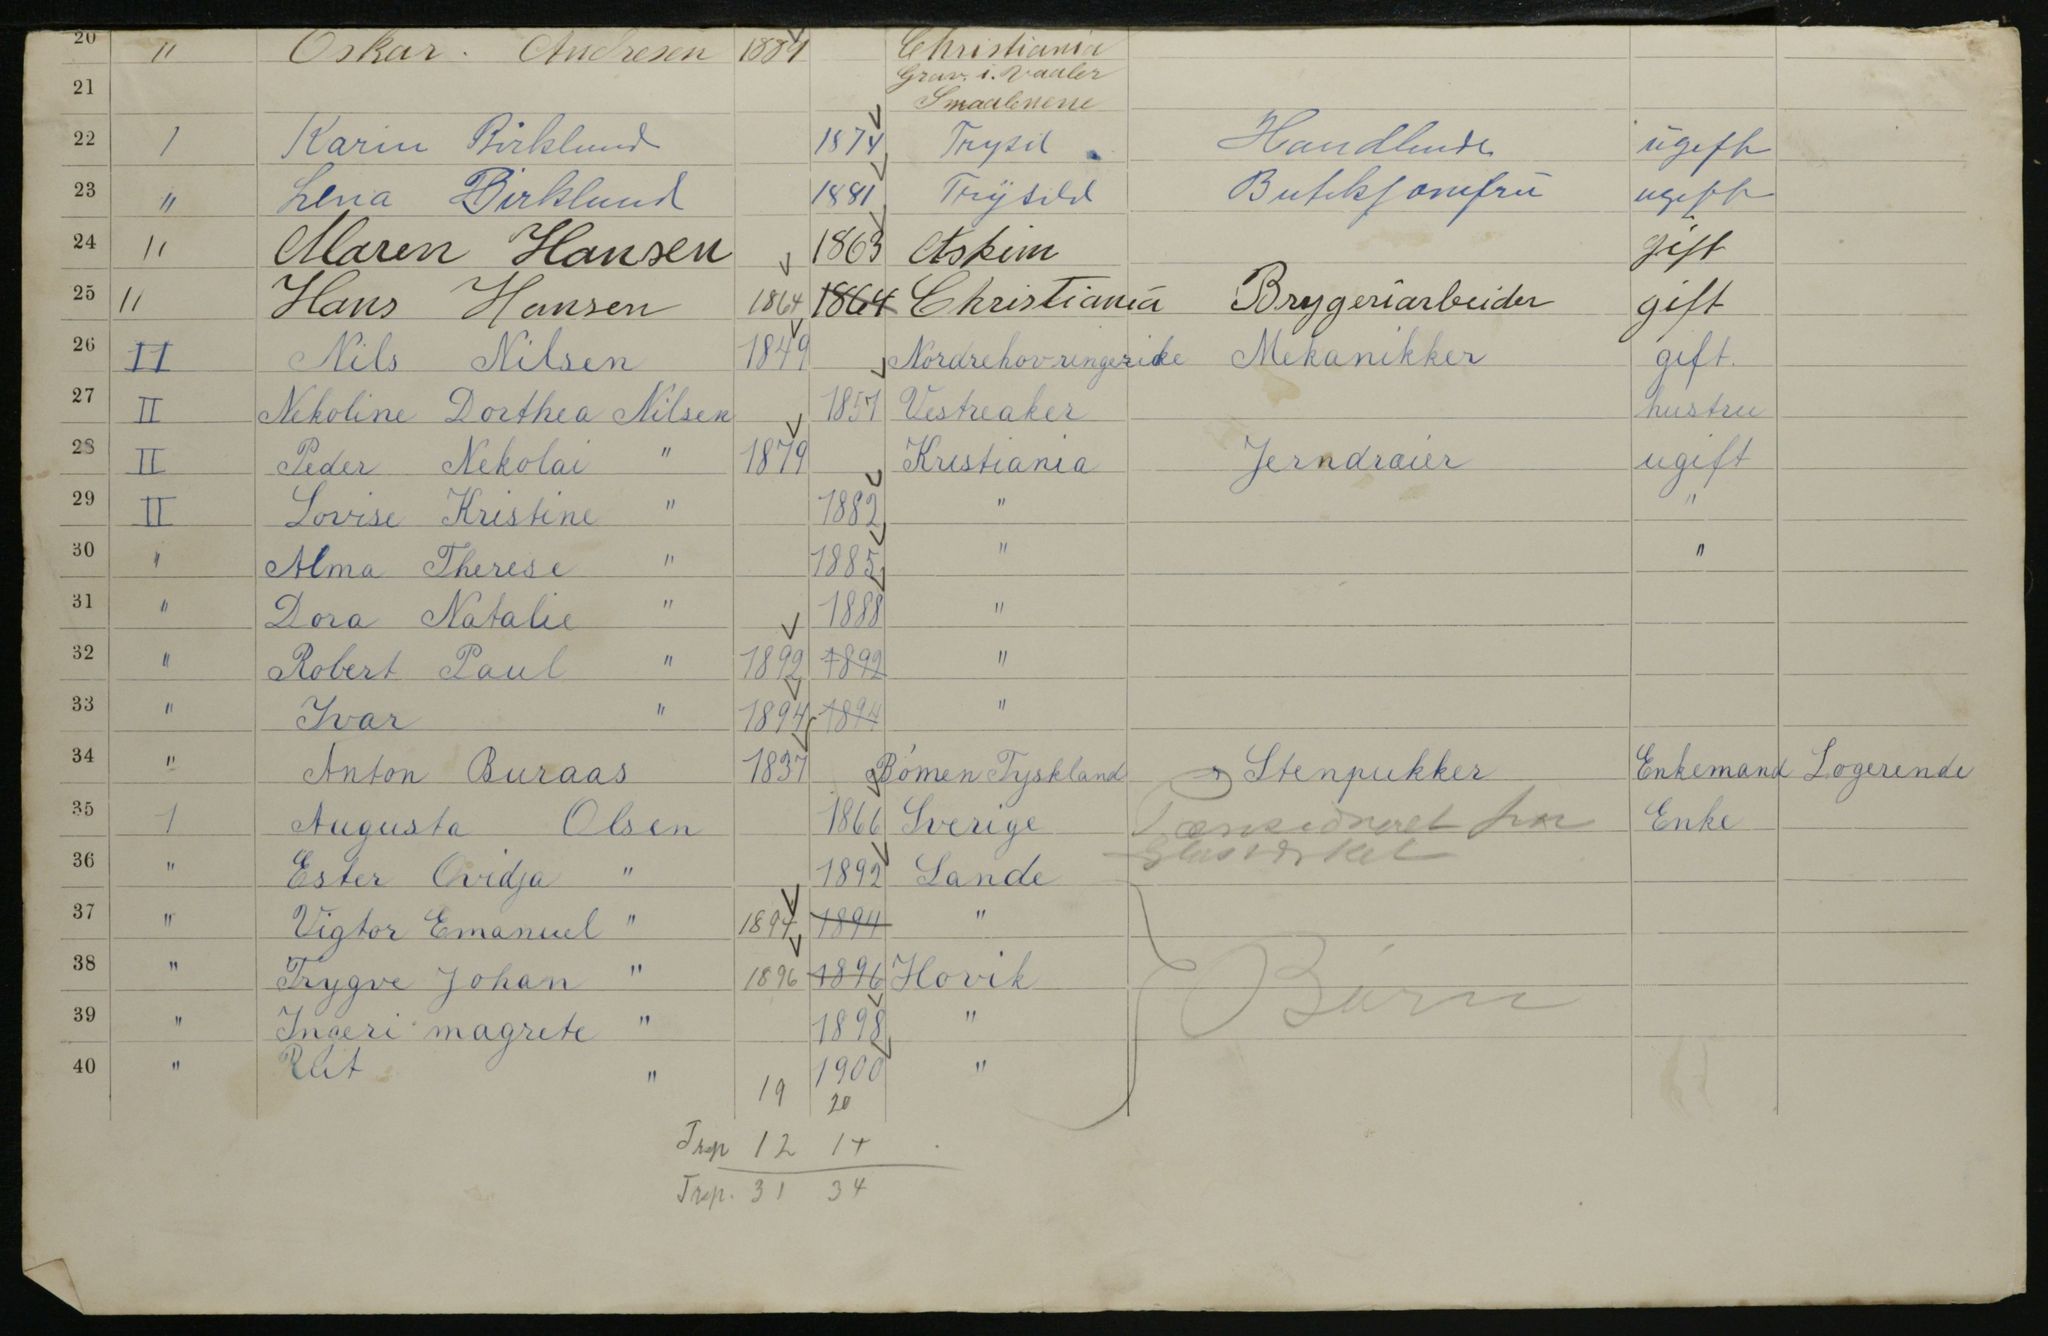 20 " Oskar. Andresen 1889 Christiania
21 Grav. i. Vaaler Smaalenene
22 1 Karin Birklund 1874 Trysil Handlende ugift
23 " Lena Birklund 1881 Trysild Butikjomfru ugift
24 " Maren Hansen 1863 Askim gift
25 " Hans Hansen 1864 1864 Christiania Brygeriarbeider gift
26 II Nils Nilsen 1849 Nordrehov-ringerike Mekanikker gift.
27 II Nekoline Dorthea Nilsen 1857 Vestreaker hustru
28 II Peder Nekolai " 1879 Kristiania Jerndraier ugift
29 II Lovise Kristine " 1882 " "
30 " Alma Therese " 1885 " "
31 " Dora Natalie " 1888 "
32 " Robert Paul " 1892 1892 "
33 " Ivar " 1894 1894 "
34 " Anton Buraas 1837 Bömen Tyskland Stenpukker Enkemand Logerende
35 1 Augusta Olsen 1866 Sverige Pænsioneret fra Enke
Glasværket
36 " Ester Ovidja " 1892 Sande
37 " Vigtor Emanuel " 1894 1894 "
38 " Trygve Johan " 1896 1896 Hovik
Børn
39 " Ingeri magrete " 1898 "
40 " Rut " 1900 "
19 20
Trsp 12 14
Trsp. 31 34